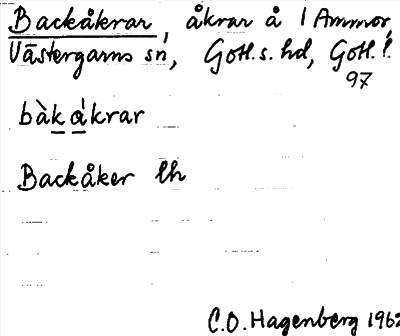 Backåkrar, åkrar å 1 Ammor,
Västergarns sn, Gotl. s. hd, Gotl. l.
97
bàkåkrar
Backåker lh
C.O. Hagenberg 1962